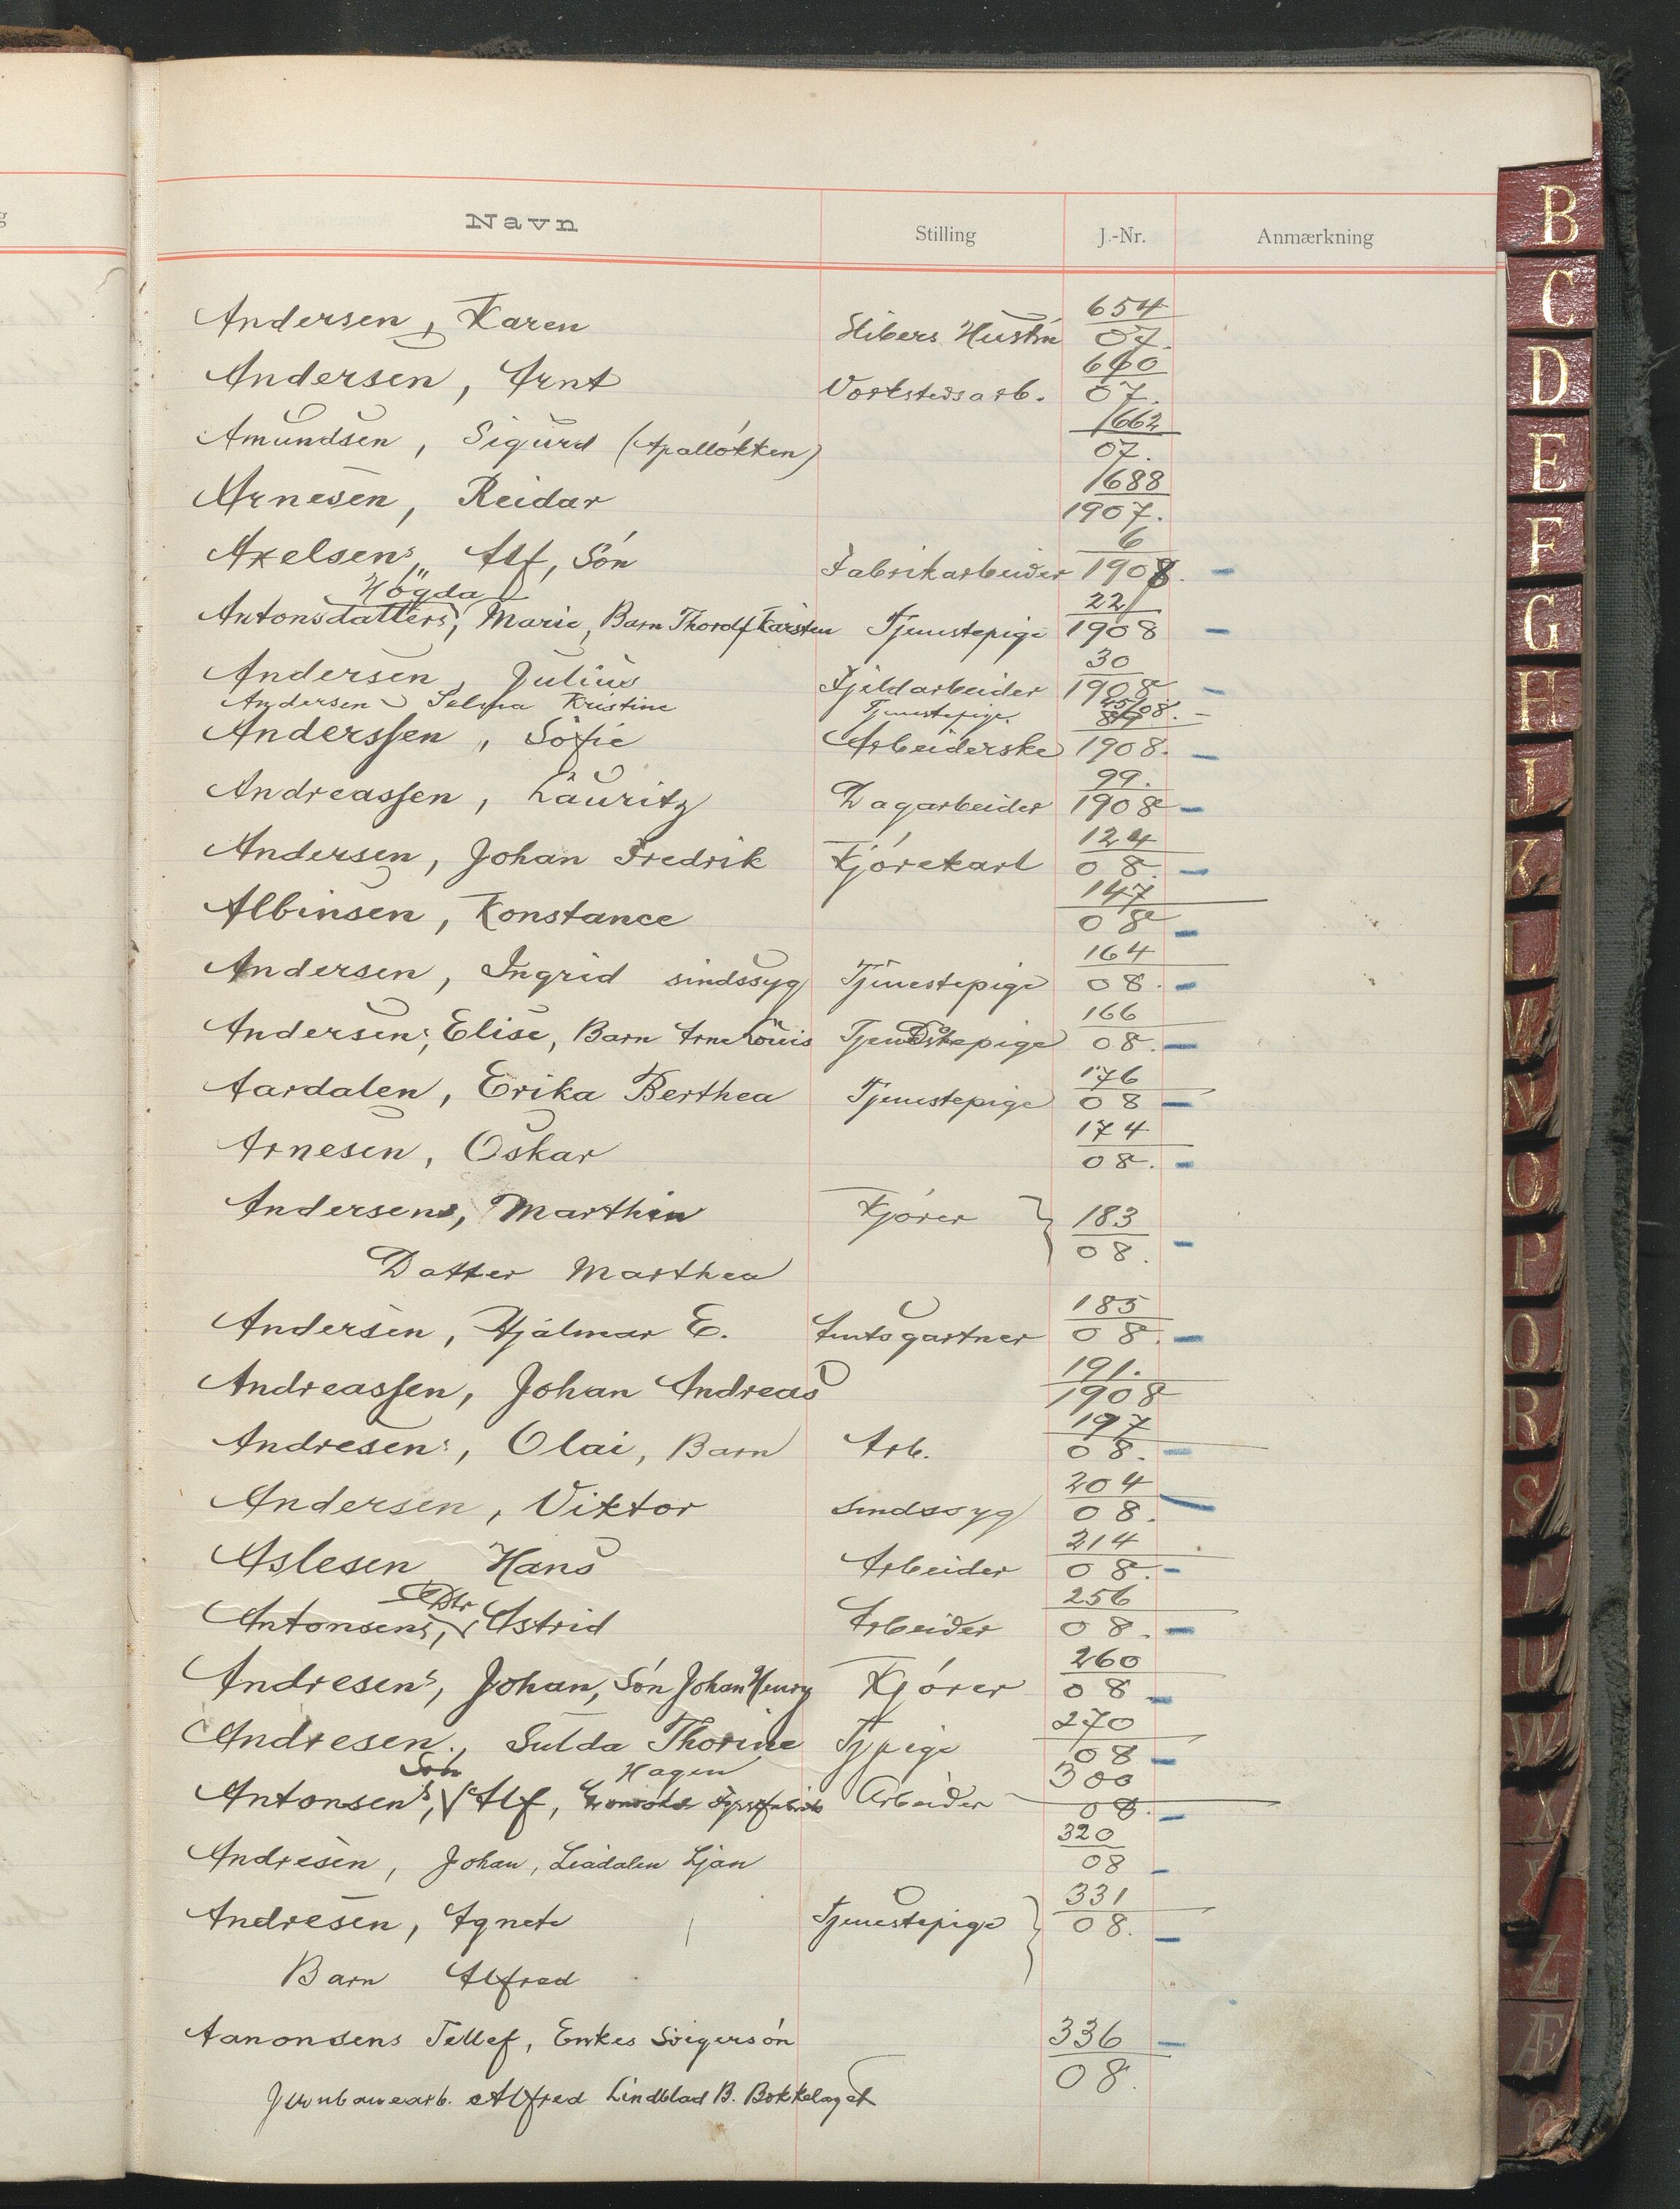 Navn Stilling J.-Nr. Anmærkning
Andersen, Karen Slibers Hustru 654/07.
Andersen, Arnt Verkstedsarb. 660/07.
Amundsen, Sigurd (Apalløkken) 1662/07.
Arnesen, Reidar 1688/1907.
Axelsen's, Alf, Søn Fabrikarbeider 6/1908.
Høgda
Antonsdatters, Marie, Barn Thorolf Karsten Tjenestepige 22/1908
Andersen, Julius Fjeldarbeider 30/1908
Andersen Selma Kristine Tjenestepige 45/08.
Anderssen, Sofie Arbeiderske 89/1908.
Andreassen, Lauritz Dagarbeider 99./1908
Andersen, Johan Fredrik Kjørekarl 124/08.
Albinsen, Konstance 147/08
Andersen, Ingrid sindssyg Tjenestepige 164/08.
Andersen's, Elise, Barn Arne Louis Tjenestepige 166/08.
Aardalen, Erika Berthea Tjenestepige 176/08
Arnesen, Oskar 174/08.
Andersens, Marthin Kjører } 183/08.
Datter Marthea
Andersen, Hjalmar E. Amtsgartner 185/08.
Andreassen, Johan Andreas 191./1908
Andresen's, Olai, Barn Arb. 197/08.
Andersen, Viktor sindssyg 204/08.
Aslesen Hans Arbeider 214/08.
Dtr
Antonsens, Astrid Arbeider 256/08.
Andresen's, Johan, Søn Johan Henry Kjører 260/08
Andresen, Sulda Thorine Tjpige 270/08
Søn Hagen
Antonsen's, Alf, Arbeider 300/08.
Andresen, Johan, Liadalen Ljan 320/08
Andresen, Agnete Tjenestepige } 331/08.
Barn Alfred
Aanonsens Tellef, Enkes Svigersøn 336/08.
Jernbanearb. Alfred Lindblad B. Bekkelaget
B
C
D
E
F
G
H
J
K
L
M
N
O
P
Q
R
S
T
U
W
X
Y
Z
Æ
Ø